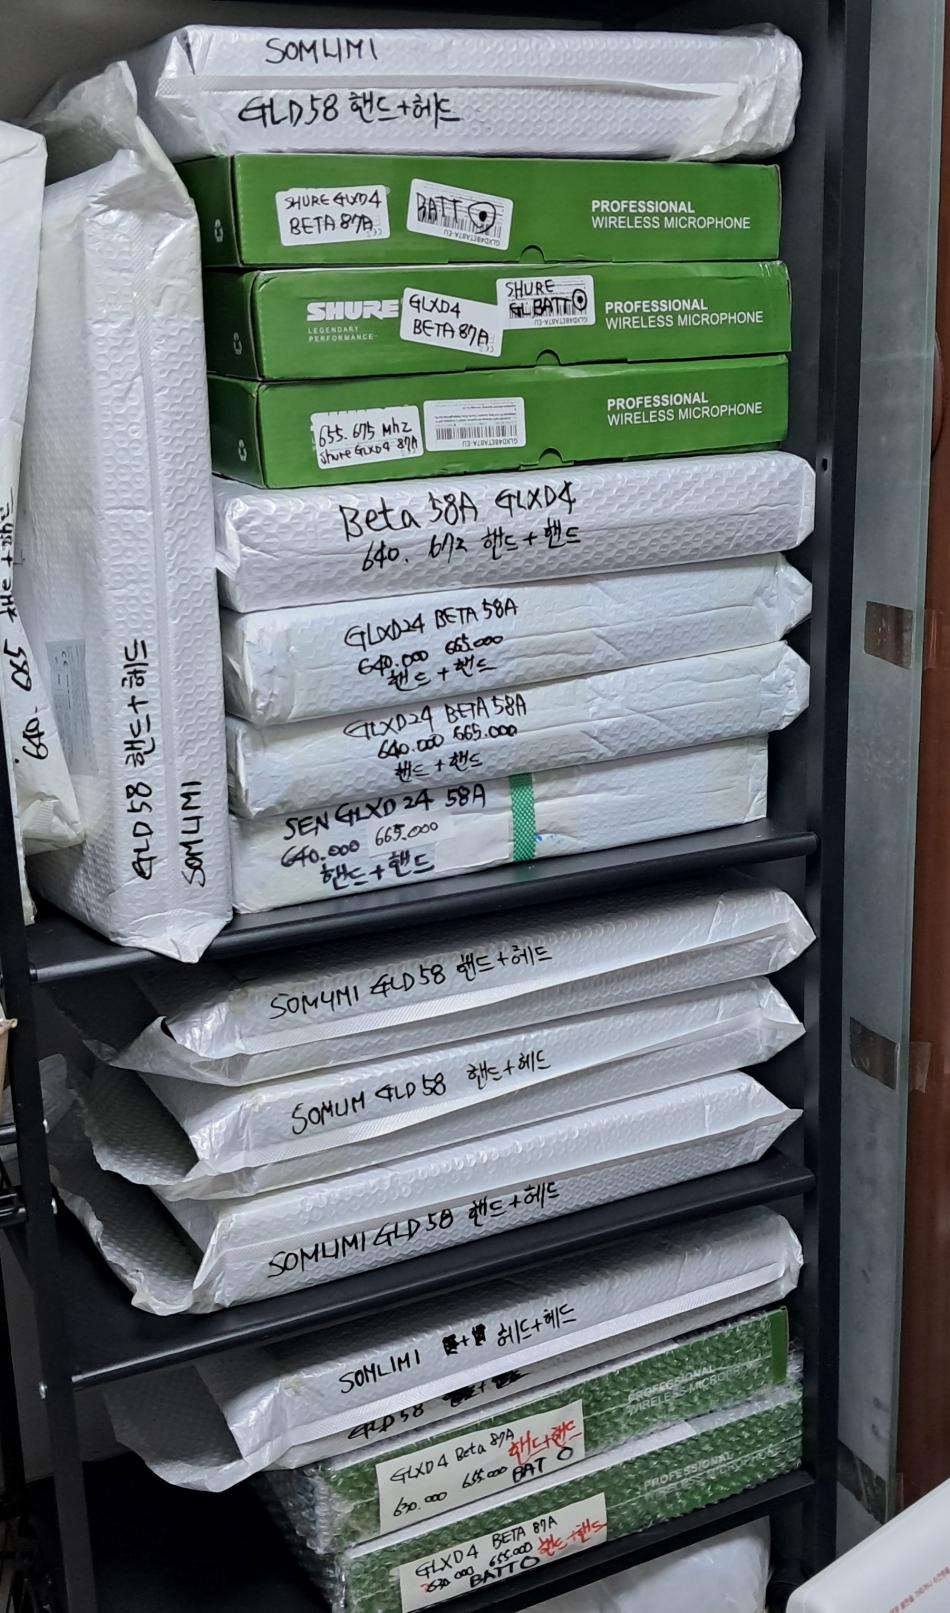 SOMLIMI
GLD58 핸드+헤드
SHURE GLXD4
BETA 87A
BATT
GLXD4BETA87A-EU
PROFESSIONAL
WIRELESS MICROPHONE
SHURE
LEGENDARY
PERFORMANCE
GLXD4
BETA 87A
SHURE
BATT
GLXD4BETA87A-EU
PROFESSIONAL
WIRELESS MICROPHONE
655.675 Mhz
Shure GLXD4 87A
GLXD4BETA87A-EU
PROFESSIONAL
WIRELESS MICROPHONE
Beta 58A GLXD4
640. 672 핸드+핸드
GLXD24 BETA 58A
640.000 665.000
핸드+핸드
GLXD24 BETA 58A
640.000 665.000
핸드+핸드
SEN GLXD24 58A
640.000 665.000
핸드+핸드
640. 665
GLD58 핸드+헤드
SOMLIMI
SOMLIMI GLD58 핸드+헤드
SOMLIM GLD58 핸드+헤드
SOMLIMI GLD58 핸드+헤드
SOMLIMI 헤드+헤드
GLD58
PROFESSIONAL
WIRELESS MICROPHONE
GLXD4 Beta 87A
핸드+핸드
630.000 655.000 BAT O
PROFESSIONAL
GLXD4 BETA 87A
630.000 655.000 핸드+핸드
BATT O